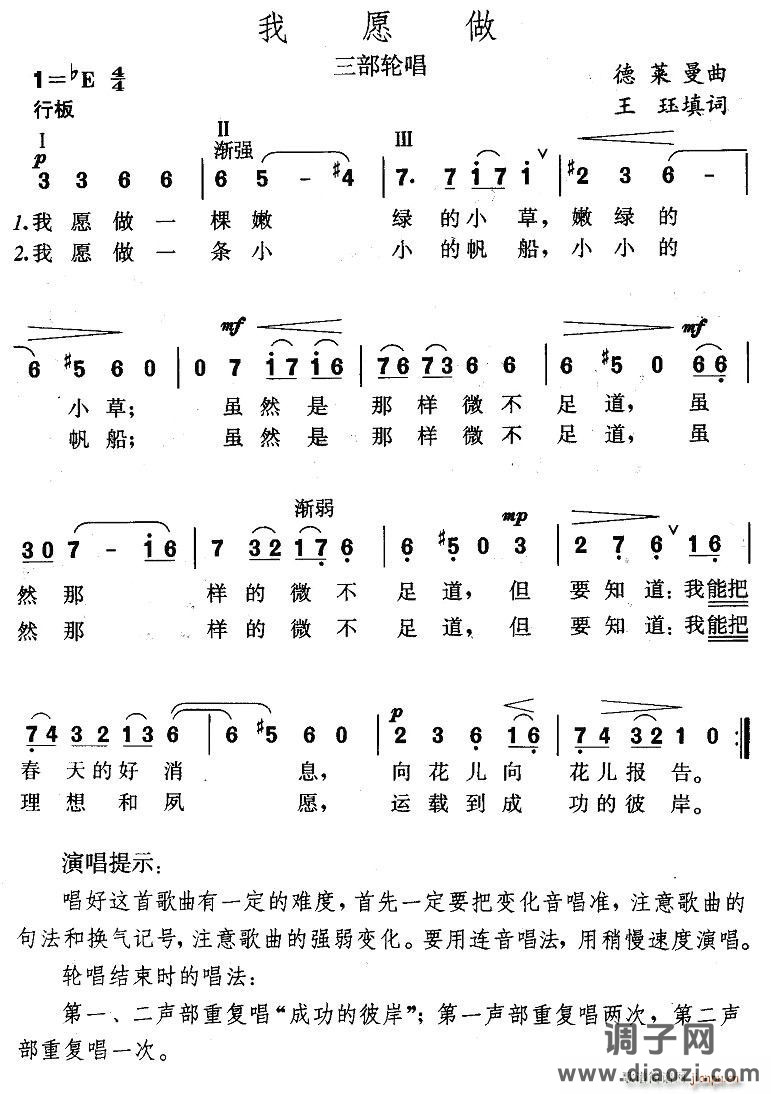 我愿做
三部轮唱
1=♭E 4/4
德莱曼曲
行板
王珏填词
Ⅰ Ⅱ Ⅲ
p 渐强
3 3 6 6 | 6 5 - #4 | 7. 7 i 7 i ∨ | #2 3 6 - |
1.我愿做一棵嫩绿的小草,嫩绿的
2.我愿做一条小小的帆船,小小的
mf mf
6 #5 6 0 | 0 7 i 7 i 6 | 7 6 7 3 6 6 | 6 #5 0 6 6 |
小草;虽然是那样微不足道,虽
帆船;虽然是那样微不足道,虽
渐弱 mp
3 0 7 - i 6 | 7 3 2 1 7 6 | 6 #5 0 3 | 2 7 6 ∨ 1 6 |
然那样的微不足道,但要知道:我能把
然那样的微不足道,但要知道:我能把
p
7 4 3 2 1 3 6 | 6 #5 6 0 | 2 3 6 1 6 | 7 4 3 2 1 0 :‖
春天的好消息,向花儿向花儿报告。
理想和夙愿,运载到成功的彼岸。
演唱提示:
唱好这首歌曲有一定的难度,首先一定要把变化音唱准,注意歌曲的
句法和换气记号,注意歌曲的强弱变化。要用连音唱法,用稍慢速度演唱。
轮唱结束时的唱法:
第一、二声部重复唱“成功的彼岸”;第一声部重复唱两次,第二声
部重复唱一次。
调子网
www.diaozi.com